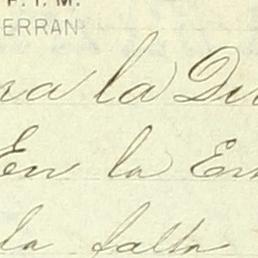 F. T. M.
ERRAN
ra la Di
En la En
la falta